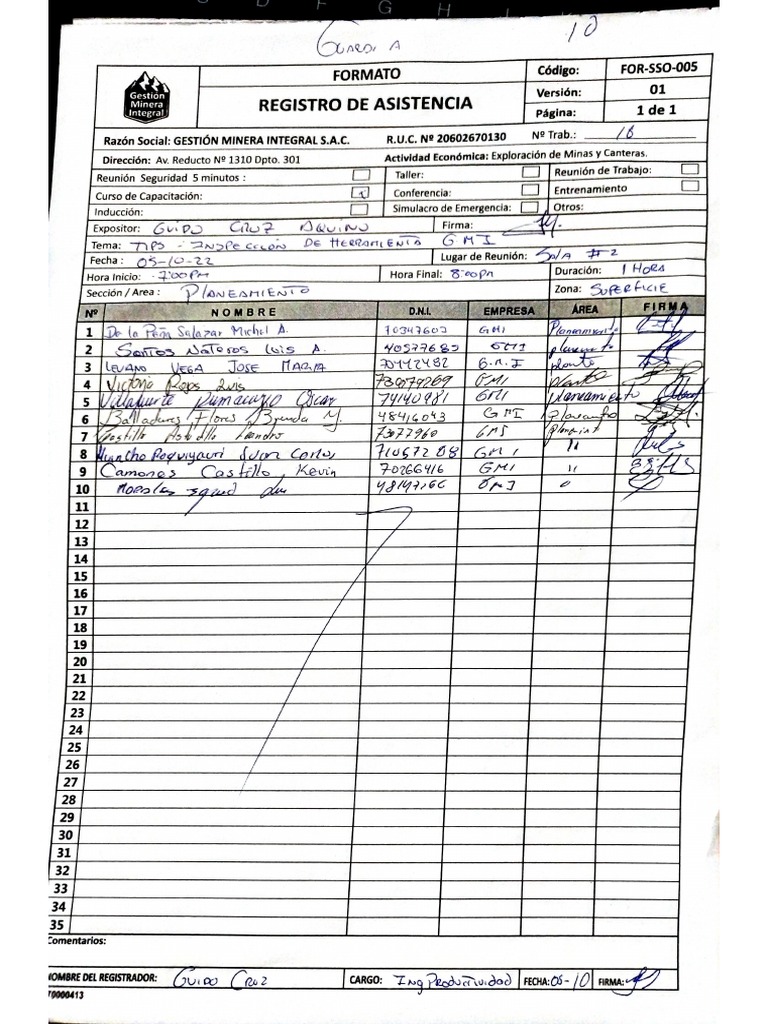 D F G H
Guardia A
10
Gestión
Minera
Integral
FORMATO
REGISTRO DE ASISTENCIA
Código: FOR-SSO-005
Versión: 01
Página: 1 de 1
Razón Social: GESTIÓN MINERA INTEGRAL S.A.C. R.U.C. Nº 20602670130 Nº Trab.: 10
Dirección: Av. Reducto Nº 1310 Dpto. 301 Actividad Económica: Exploración de Minas y Canteras.
Reunión Seguridad 5 minutos : Taller: Reunión de Trabajo:
Curso de Capacitación: x Conferencia: Entrenamiento
Inducción: Simulacro de Emergencia: Otros:
Expositor: GUIDO CRUZ AQUINO Firma:
Tema: TIPS - INSPECCIÓN DE HERRAMIENTA GMI
Fecha : 05-10-22 Lugar de Reunión: Sala #2
Hora Inicio: 7:00PM Hora Final: 8:00PM Duración: 1 HORA
Sección / Area : PLANEAMIENTO Zona: SUPERFICIE
Nº NOMBRE D.N.I. EMPRESA ÁREA FIRMA
1 De la Peña Salazar Michel A. 70347602 GMI Planeamiento
2 Santos Luis A. 40577682 GMI
3 LEVANO VEGA JOSE MARIA 70442482 G.M.I
4 Victorio Luis GMI
5 Oscar 74140981 GMI planeamiento
6 Balladares Flores Brenda M. 48416043 GMI
7 Castillo Leandro 73077960 GMI
8 Juan Carlos 71057208 GMI "
9 Camones Castillo, Kevin 70266416 GMI "
10 Morales GMI
11
12
13
14
15
16
17
18
19
20
21
22
23
24
25
26
27
28
29
30
31
32
33
34
35
Comentarios:
NOMBRE DEL REGISTRADOR: GUIDO CRUZ CARGO: Ing Productividad FECHA: 05-10 FIRMA:
70000413